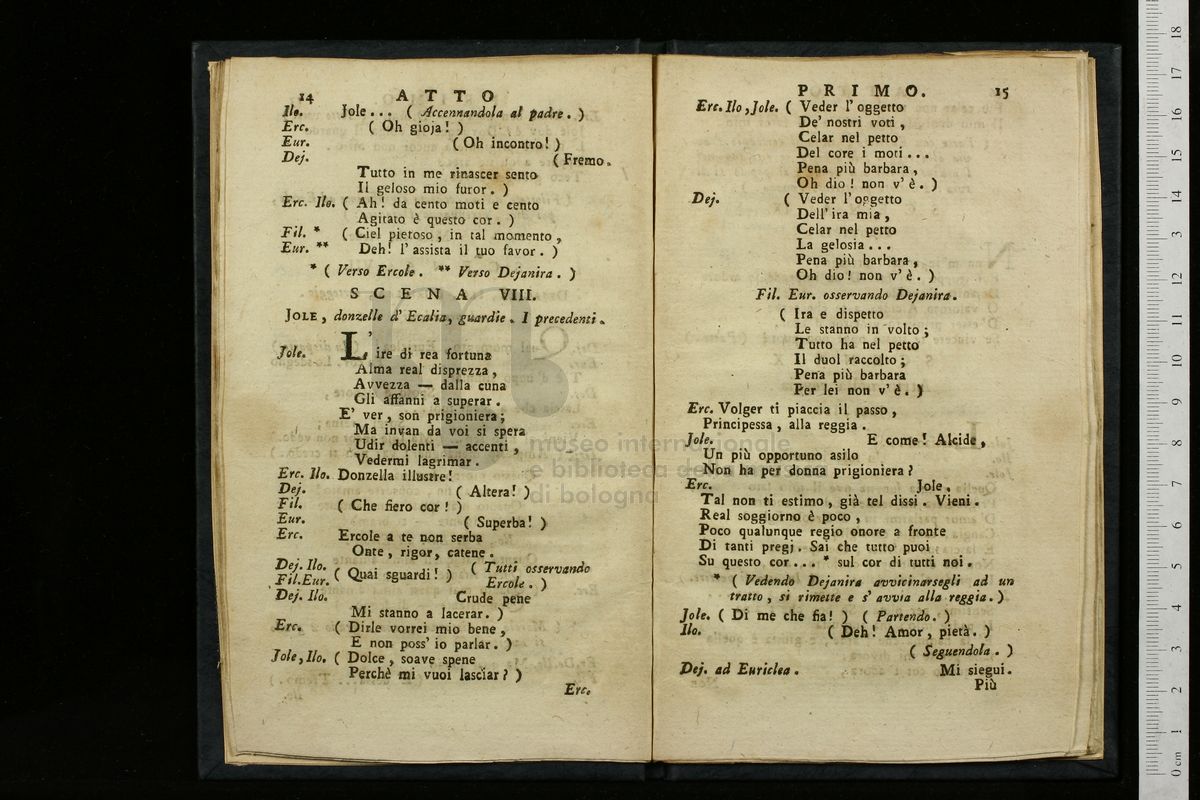 14 ATTO
Ilo. Jole... ( Accennandola al padre. )
Erc. ( Oh gioja! )
Eur. ( Oh incontro! )
Dej. ( Fremo.
Tutto in me rinascer sento
Il geloso mio furor. )
Erc. Ilo. ( Ah! da cento moti e cento
Agitato è questo cor. )
Fil. * ( Ciel pietoso, in tal momento,
Eur. ** Deh! l'assista il tuo favor. )
* ( Verso Ercole. ** Verso Dejanira. )
SCENA VIII.
JOLE, donzelle d' Ecalia, guardie. I precedenti.
Jole. L'ire di rea fortuna
Alma real disprezza,
Avvezza — dalla cuna
Gli affanni a superar.
E' ver, son prigioniera;
Ma invan da voi si spera
Udir dolenti — accenti,
Vedermi lagrimar.
Erc. Ilo. Donzella illustre!
Dej. ( Altera! )
Fil. ( Che fiero cor! )
Eur. ( Superba! )
Erc. Ercole a te non serba
Onte, rigor, catene.
Dej. Ilo. Fil. Eur. ( Quai sguardi! ) ( Tutti osservando
Ercole. )
Dej. Ilo. Crude pene
Mi stanno a lacerar. )
Erc. ( Dirle vorrei mio bene,
E non poss' io parlar. )
Jole, Ilo. ( Dolce, soave spene
Perchè mi vuoi lasciar? )
Erc.
PRIMO. 15
Erc. Ilo, Jole. ( Veder l'oggetto
De' nostri voti,
Celar nel petto
Del core i moti...
Pena più barbara,
Oh dio! non v'è. )
Dej. ( Veder l'oggetto
Dell'ira mia,
Celar nel petto
La gelosia...
Pena più barbara,
Oh dio! non v'è. )
Fil. Eur. osservando Dejanira.
( Ira e dispetto
Le stanno in volto;
Tutto ha nel petto
Il duol raccolto;
Pena più barbara
Per lei non v'è. )
Erc. Volger ti piaccia il passo,
Principessa, alla reggia.
Jole. E come! Alcide,
Un più opportuno asilo
Non ha per donna prigioniera?
Erc. Jole.
Tal non ti estimo, già tel dissi. Vieni.
Real soggiorno è poco,
Poco qualunque regio onore a fronte
Di tanti pregj. Sai che tutto puoi
Su questo cor... * sul cor di tutti noi.
* ( Vedendo Dejanira avvicinarsegli ad un
tratto, si rimette e s' avvia alla reggia. )
Jole. ( Di me che fia! ) ( Partendo. )
Ilo. ( Deh! Amor, pietà. )
( Seguendola. )
Dej. ad Euriclea. Mi siegui.
Più
museo internazionale
e biblioteca de
di bologna
0 cm 1 2 3 4 5 6 7 8 9 10 11 12 13 14 15 16 17 18